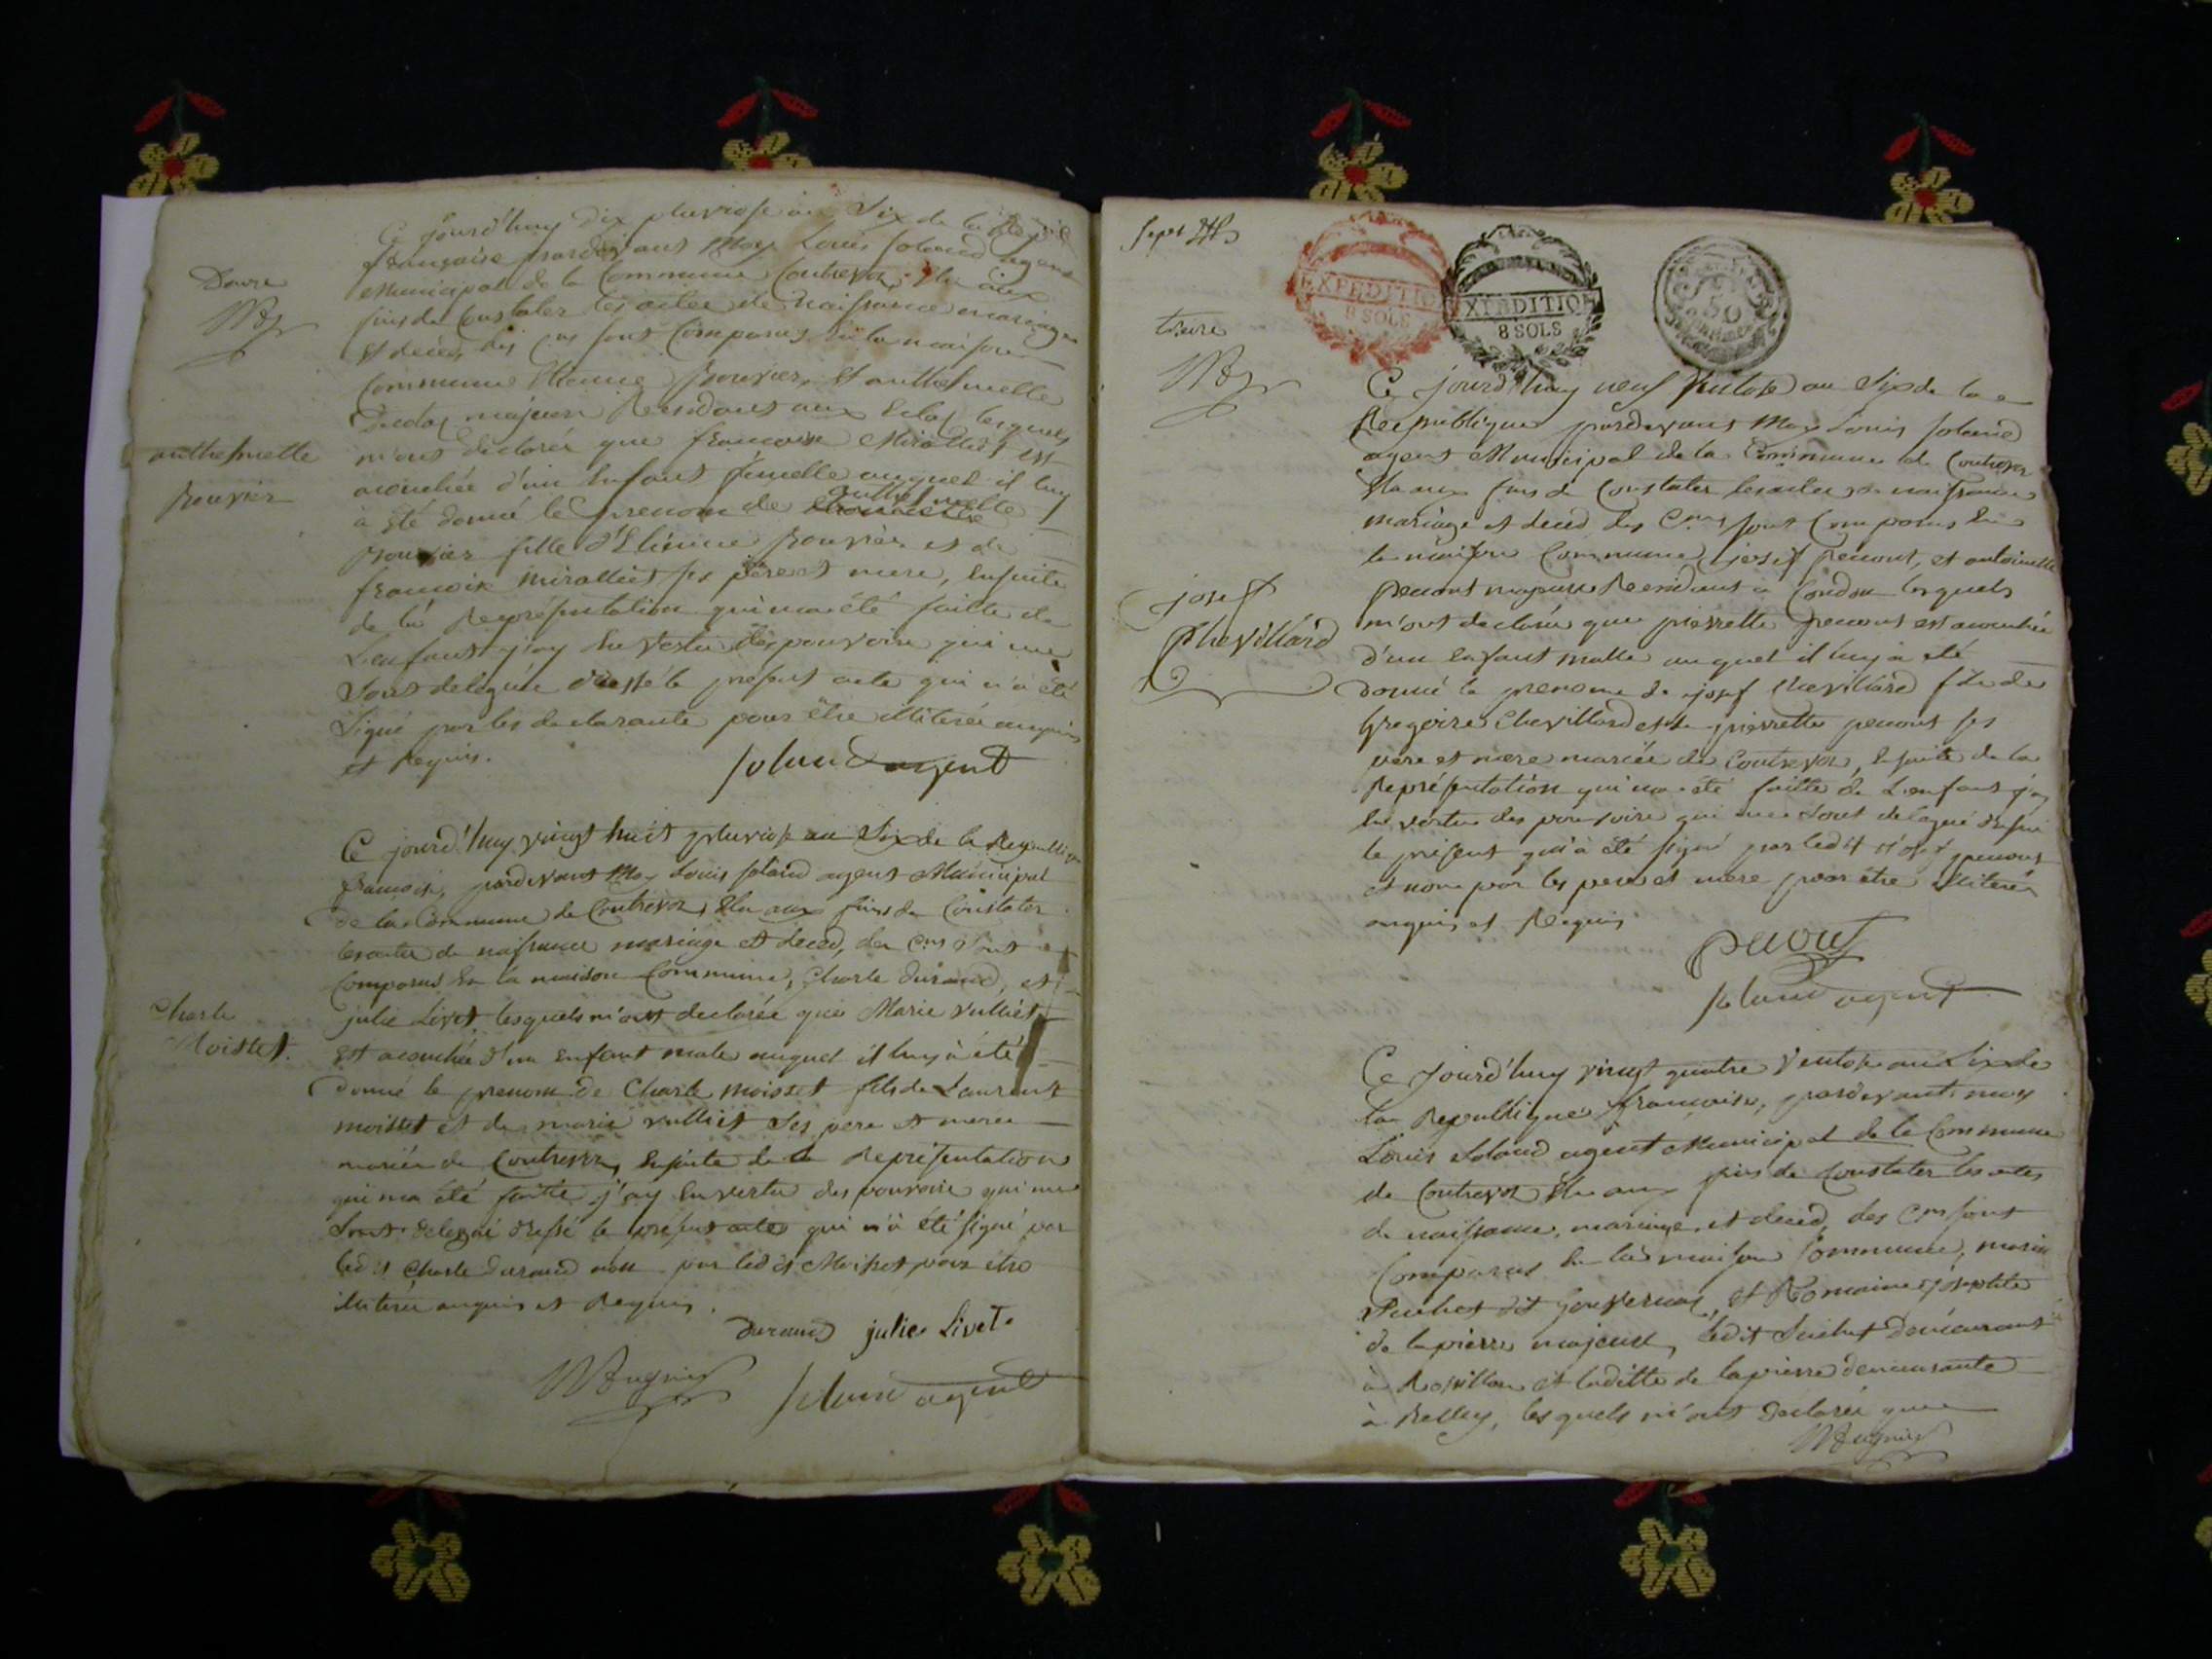 Douze
anthelmette
Bouvier
Ce jourd'huy dix pluviose an Six de la Rep
française pardevant Moy Louis Soland agent
Municipal de la Commune Contrevoz, Elu aux
fins de Constater les actes de naissance mariage
et décès des Cns sont Comparus en la maison
Commune Etienne Bouvier, et anthelmette
majeurs Residants aux lesquels
m'ont declarés que francoise Miralliet est
acouchée d'un Enfant femelle auquel il luy
à été donné le prenom de anthelmette
Bouvier fille d'Etienne Bouvier et de
francoise miralliet ses père et mere, Ensuite
de la Représentation qui ma été faitte de
L'enfant j'ay En vertu des pouvoirs qui me
Sont delegués dressé le présent acte qui n'a été
Signé par les declarants pour être illiterés enquis
et Requis.
Soland agent
Charle
Moisset.
Ce jourd'huy vingt huit pluviose an Six de la Republique
françoise, pardevant Moy Louis Soland agent Municipal
de la Commune de Contrevoz, Elu aux fins de Constater
les actes de naissance mariage et deced, des Cns Sont
Comparus En la maison Commune, Charle durand, et
julie Livet lesquels m'ont declarée que Marie vulliet
Est acouchée d'un Enfant male auquel il luy à été
Donné le prenom de Charle moisset fils de Laurent
moisset et de marie vulliet Ses pere et mere
mariés de Contrevoz, Ensuite de la Représentation
qui ma été faitte, j'ay En vertu des pouvoirs qui me
Sont delegué dressé le présent acte qui n'à été signé par
led it Charle Durand non par led it Moisset pour être
illiterés enquis et Requis.
Durand julie Livet
Soland agent
Sept
EXPEDITION
8 SOLS
EXPEDITION
8 SOLS
50
treize
josef
Chevillard
Ce jourd'huy neuf Ventose an Six de la
Republique pardevant Moy Louis Soland
agent Municipal de la Commune de Contrevoz
Elu aux fins de Constater les actes de naissance
mariage et deced des Cns sont Comparus En
la maison Commune josef penont, et antoinette
penont majeurs Residants à Condon lesquels
m'ont declarés que pierrette penont est acouchée
d'un Enfant malle auquel il luy à été
Donné le prenom de josef Chevillard fils de
Gregoire Chevillard et de pierrette penont ses
père et mere mariés de Contrevoz, Ensuite de la
Représentation qui ma été faitte de L'enfant j'ay
En vertu des pouvoirs qui me Sont delegué
le présent qui à été signé par ledit josef penont
et non par les pere et mere pour être illiterés
enquis et Requis
penont
Soland agent
Ce jourd'huy vingt quatre Ventose an Six de
la Republique françoise, pardevant moy
Louis Soland agent Municipal de la Commune
de Contrevoz Elu aux fins de Constater les actes
de naissance, mariage, et deced, des Cns sont
Comparus En la maison Commune, marin
Suchet dit et Romaine josephte
de lapierre majeurs, ledit Suchet demeurant
à Rossillon et laditte de lapierre demeurante
à Belley, lesquels m'ont Declarés que